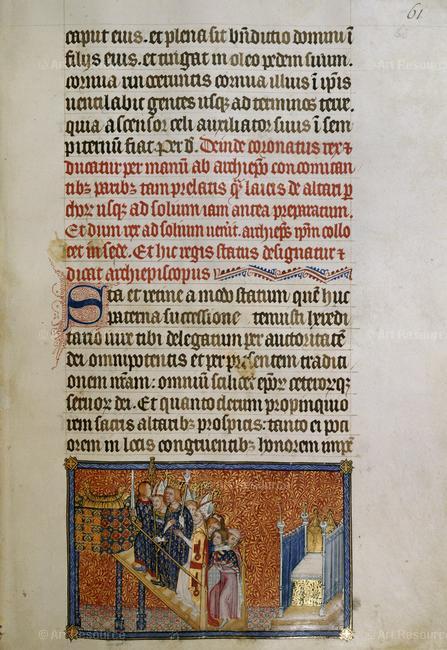 61
caput eius. et plena sit bñdictio domini ī
filijs eius. et tingat in oleo pedem suum.
cornua rinocerontis cornua illius ī ip̄is
uentilabit gentes usq; ad terminos terre.
quia ascensor celi auxiliator suus ī sem
piternū fiat. Per d. Deinde coronatus rex ⁊
ducatur per manū ab archiep̄o concomitan
tib; parib; tam prelatis q̄ laicis de altari p
chorū usq; ad solium iam antea preparatum.
Et dum rex ad solium uenit. archiep̄s ip̄m collo
cet in sede. Et hic regis status designatur ⁊
dicat archiepiscopus
Sta et retine amodo statum quē huc
paterna successione tenuisti heredi
tario iure tibi delegatum per auctoritatē
dei omnipotentis et per presentem traditi
onem nr̄am: omniū scilicet ep̄or ceterorq;
seruor dei. Et quanto clerum propinquio
rem sacris altarib; prospicis: tanto ei poti
orem in locis congruentib; honorem
Art Resource